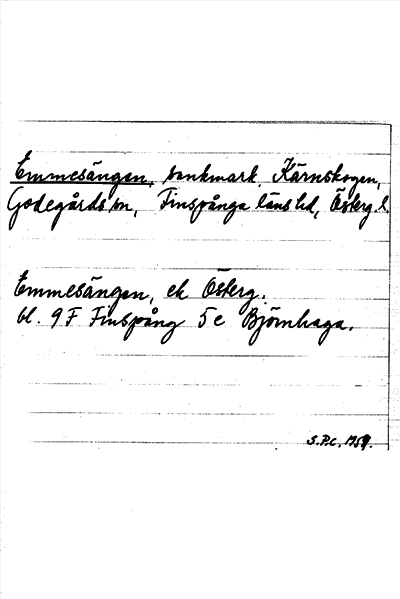 Emmesängen, sankmark, Kärnskogen,
Godegårds sn, Finspånga läns hd, Österg. l.
Emmesängen, ek Österg.
bl. 9 F Finspång 5 c Björnhaga.
S.P.c. 1959.